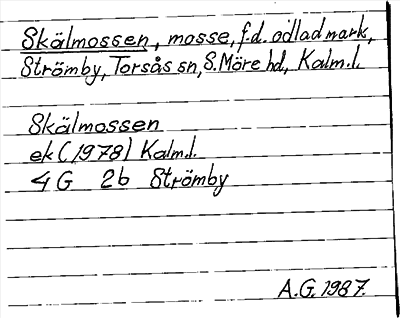 Skälmossen, mosse, f.d. odlad mark,
Strömby, Torsås sn, S. Möre hd, Kalm.l.
Skälmossen
ek (1978) Kalm.l.
4 G 2b Strömby
A.G. 1987.